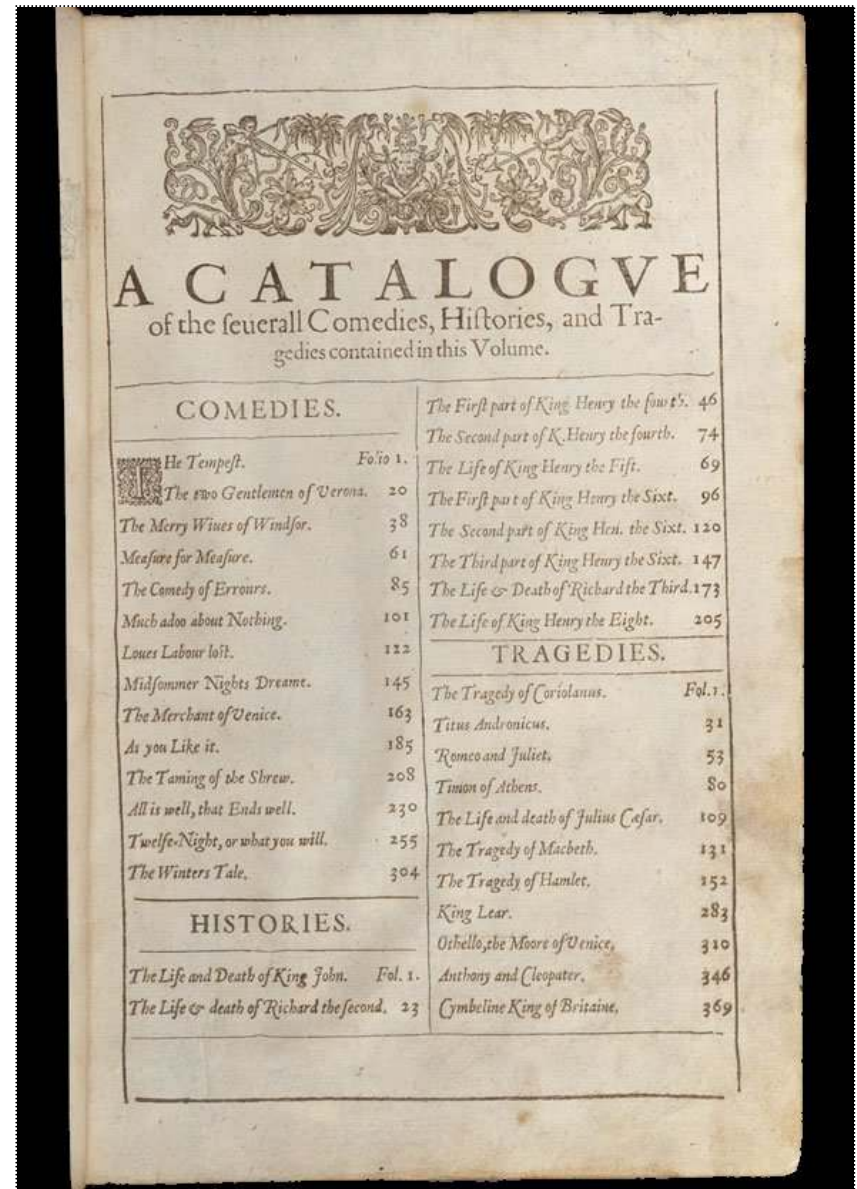 A CATALOGVE
of the ſeuerall Comedies, Hiſtories, and Tra-
gedies contained in this Volume.
COMEDIES.
THe Tempeſt. Folio 1.
The two Gentlemen of Verona. 20
The Merry Wiues of Windſor. 38
Meaſure for Meaſure. 61
The Comedy of Errours. 85
Much adoo about Nothing. 101
Loues Labour loſt. 122
Midſommer Nights Dreame. 145
The Merchant of Venice. 163
As you Like it. 185
The Taming of the Shrew. 208
All is well, that Ends well. 230
Twelfe-Night, or what you will. 255
The Winters Tale. 304
HISTORIES.
The Life and Death of King John. Fol. 1.
The Life & death of Richard the ſecond. 23
The Firſt part of King Henry the fourth. 46
The Second part of K. Henry the fourth. 74
The Life of King Henry the Fift. 69
The Firſt part of King Henry the Sixt. 96
The Second part of King Hen. the Sixt. 120
The Third part of King Henry the Sixt. 147
The Life & Death of Richard the Third. 173
The Life of King Henry the Eight. 205
TRAGEDIES.
The Tragedy of Coriolanus. Fol. 1.
Titus Andronicus. 31
Romeo and Juliet. 53
Timon of Athens. 80
The Life and death of Julius Cæſar. 109
The Tragedy of Macbeth. 131
The Tragedy of Hamlet. 152
King Lear. 283
Othello, the Moore of Venice. 310
Anthony and Cleopater. 346
Cymbeline King of Britaine. 369